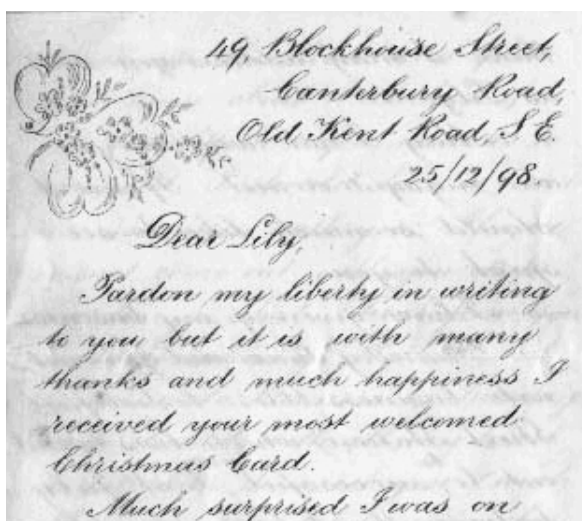 49 Blockhouse Street,
Canterbury Road,
Old Kent Road, S.E.
25/12/98.
Dear Lily,
Pardon my liberty in writing
to you but it is with many
thanks and much happiness I
received your most welcomed
Christmas Card.
Much surprised I was on